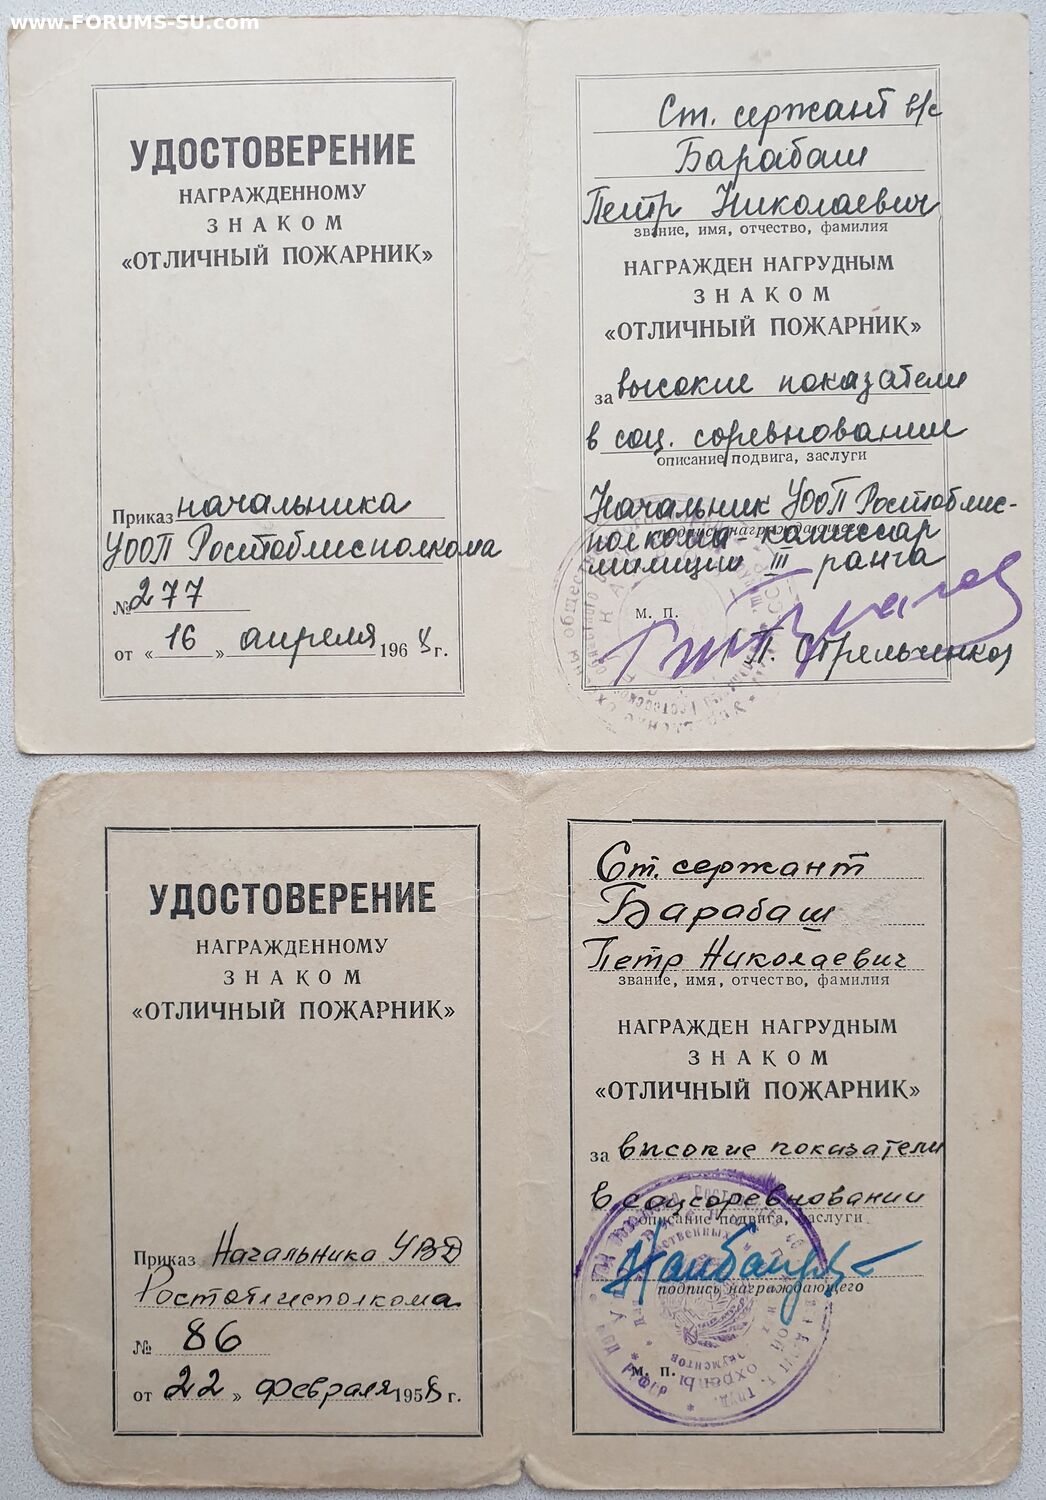 www.FORUMS-SU.com
УДОСТОВЕРЕНИЕ
НАГРАЖДЕННОМУ
ЗНАКОМ
«ОТЛИЧНЫЙ ПОЖАРНИК»
Приказ начальника
УООП Ростоблисполкома
№ 277
от «16» апреля 1968 г.
Ст. сержант в/с
Барабаш
Петр Николаевич
звание, имя, отчество, фамилия
НАГРАЖДЕН НАГРУДНЫМ
ЗНАКОМ
«ОТЛИЧНЫЙ ПОЖАРНИК»
за высокие показатели
в соц. соревновании
описание подвига, заслуги
Начальник УООП Ростоблис-
подпись награждающего
полкома комиссар
милиции III ранга
м. п.
П. Стрельченко
УДОСТОВЕРЕНИЕ
НАГРАЖДЕННОМУ
ЗНАКОМ
«ОТЛИЧНЫЙ ПОЖАРНИК»
Приказ Начальника УВД
Ростоблисполкома
№ 86
от «22» февраля 1958 г.
Ст. сержант
Барабаш
Петр Николаевич
звание, имя, отчество, фамилия
НАГРАЖДЕН НАГРУДНЫМ
ЗНАКОМ
«ОТЛИЧНЫЙ ПОЖАРНИК»
за высокие показатели
в соцсоревновании
описание подвига, заслуги
подпись награждающего
м. п.